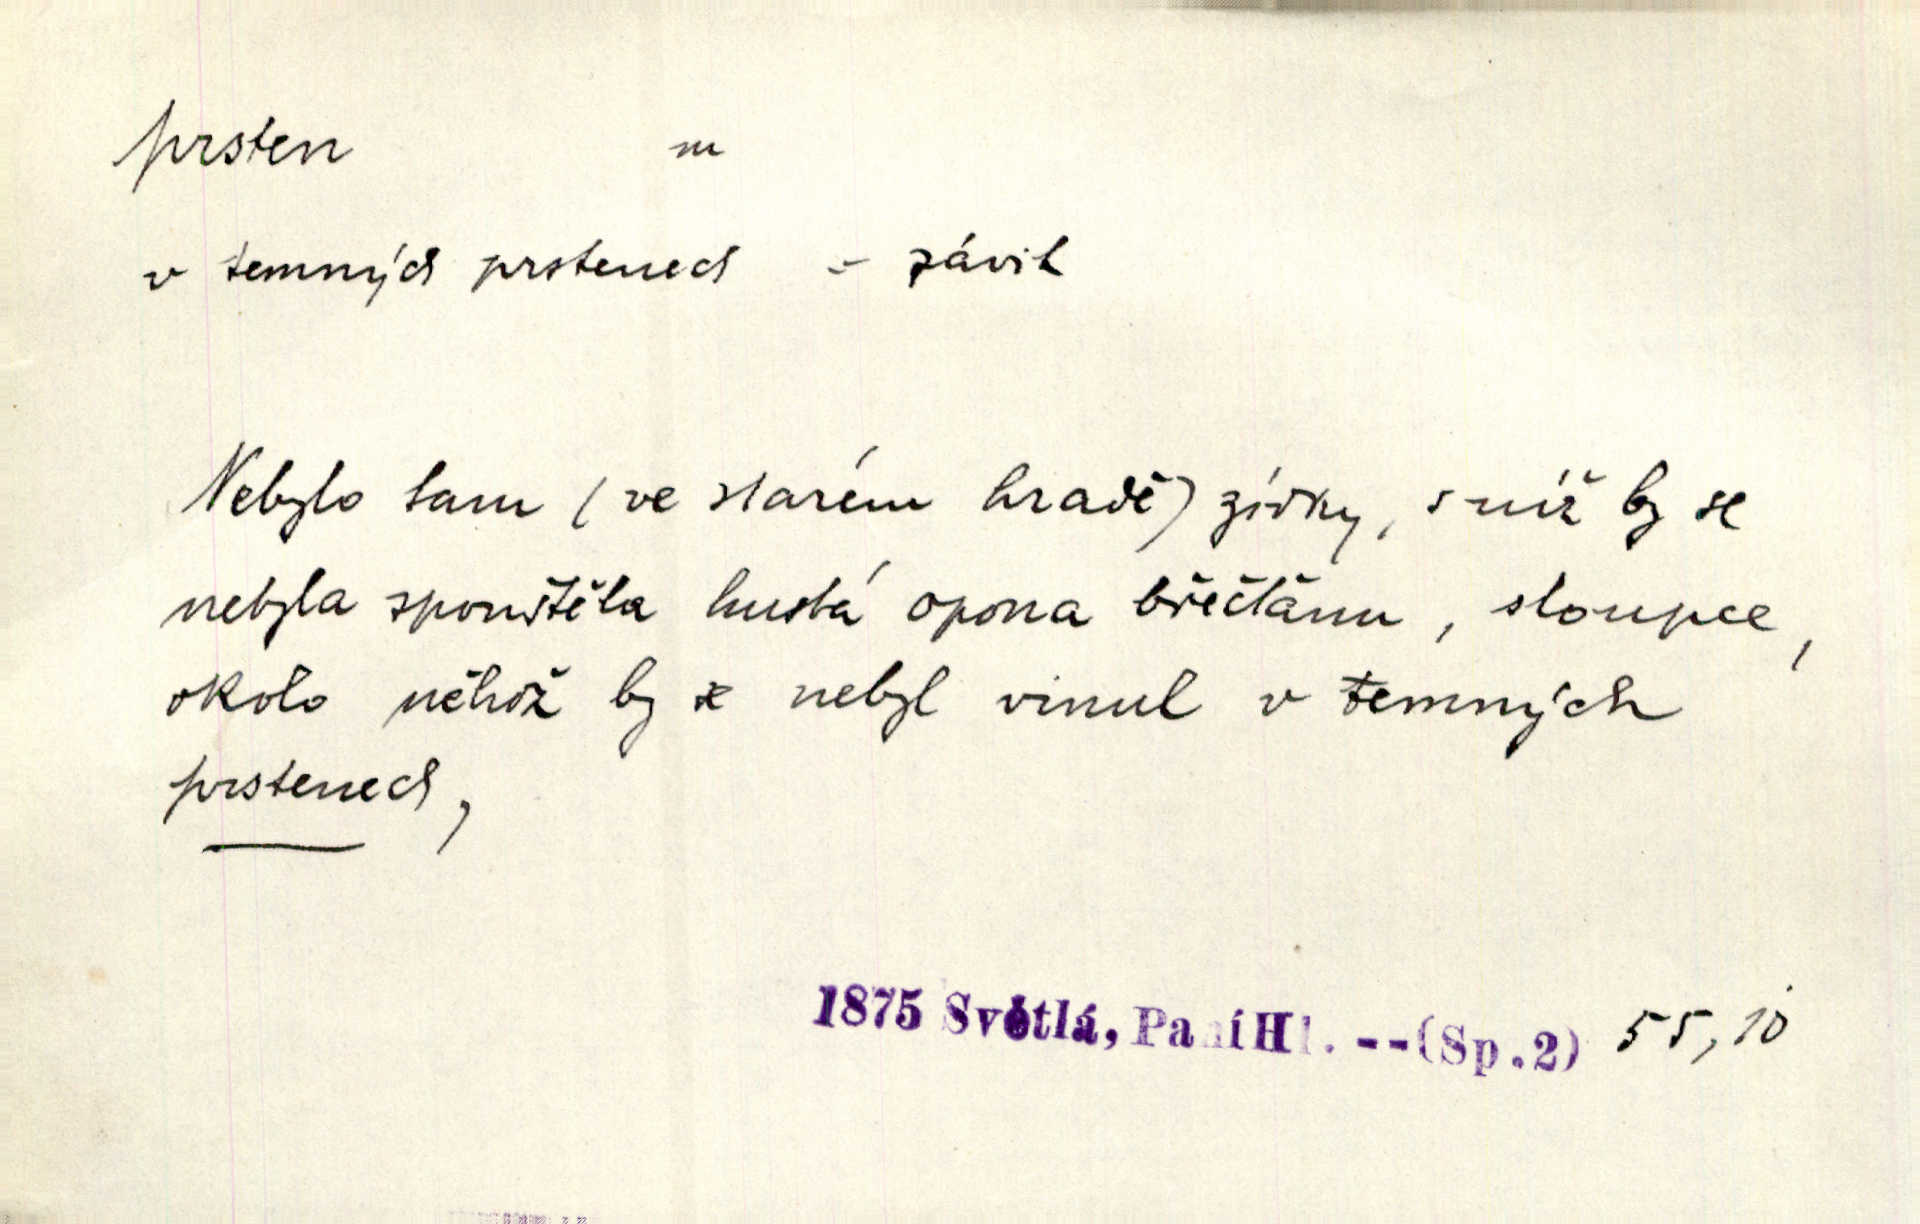 prsten m
v temných prstenech = závit
Nebylo tam (ve starém hradě) zídky, s níž by se
nebyla spouštěla hustá opona břečťanu, sloupce,
okolo něhož by se nebyl vinul v temných
prstenech,
1875 Světlá, Paní Hl. --(Sp.2) 55,10